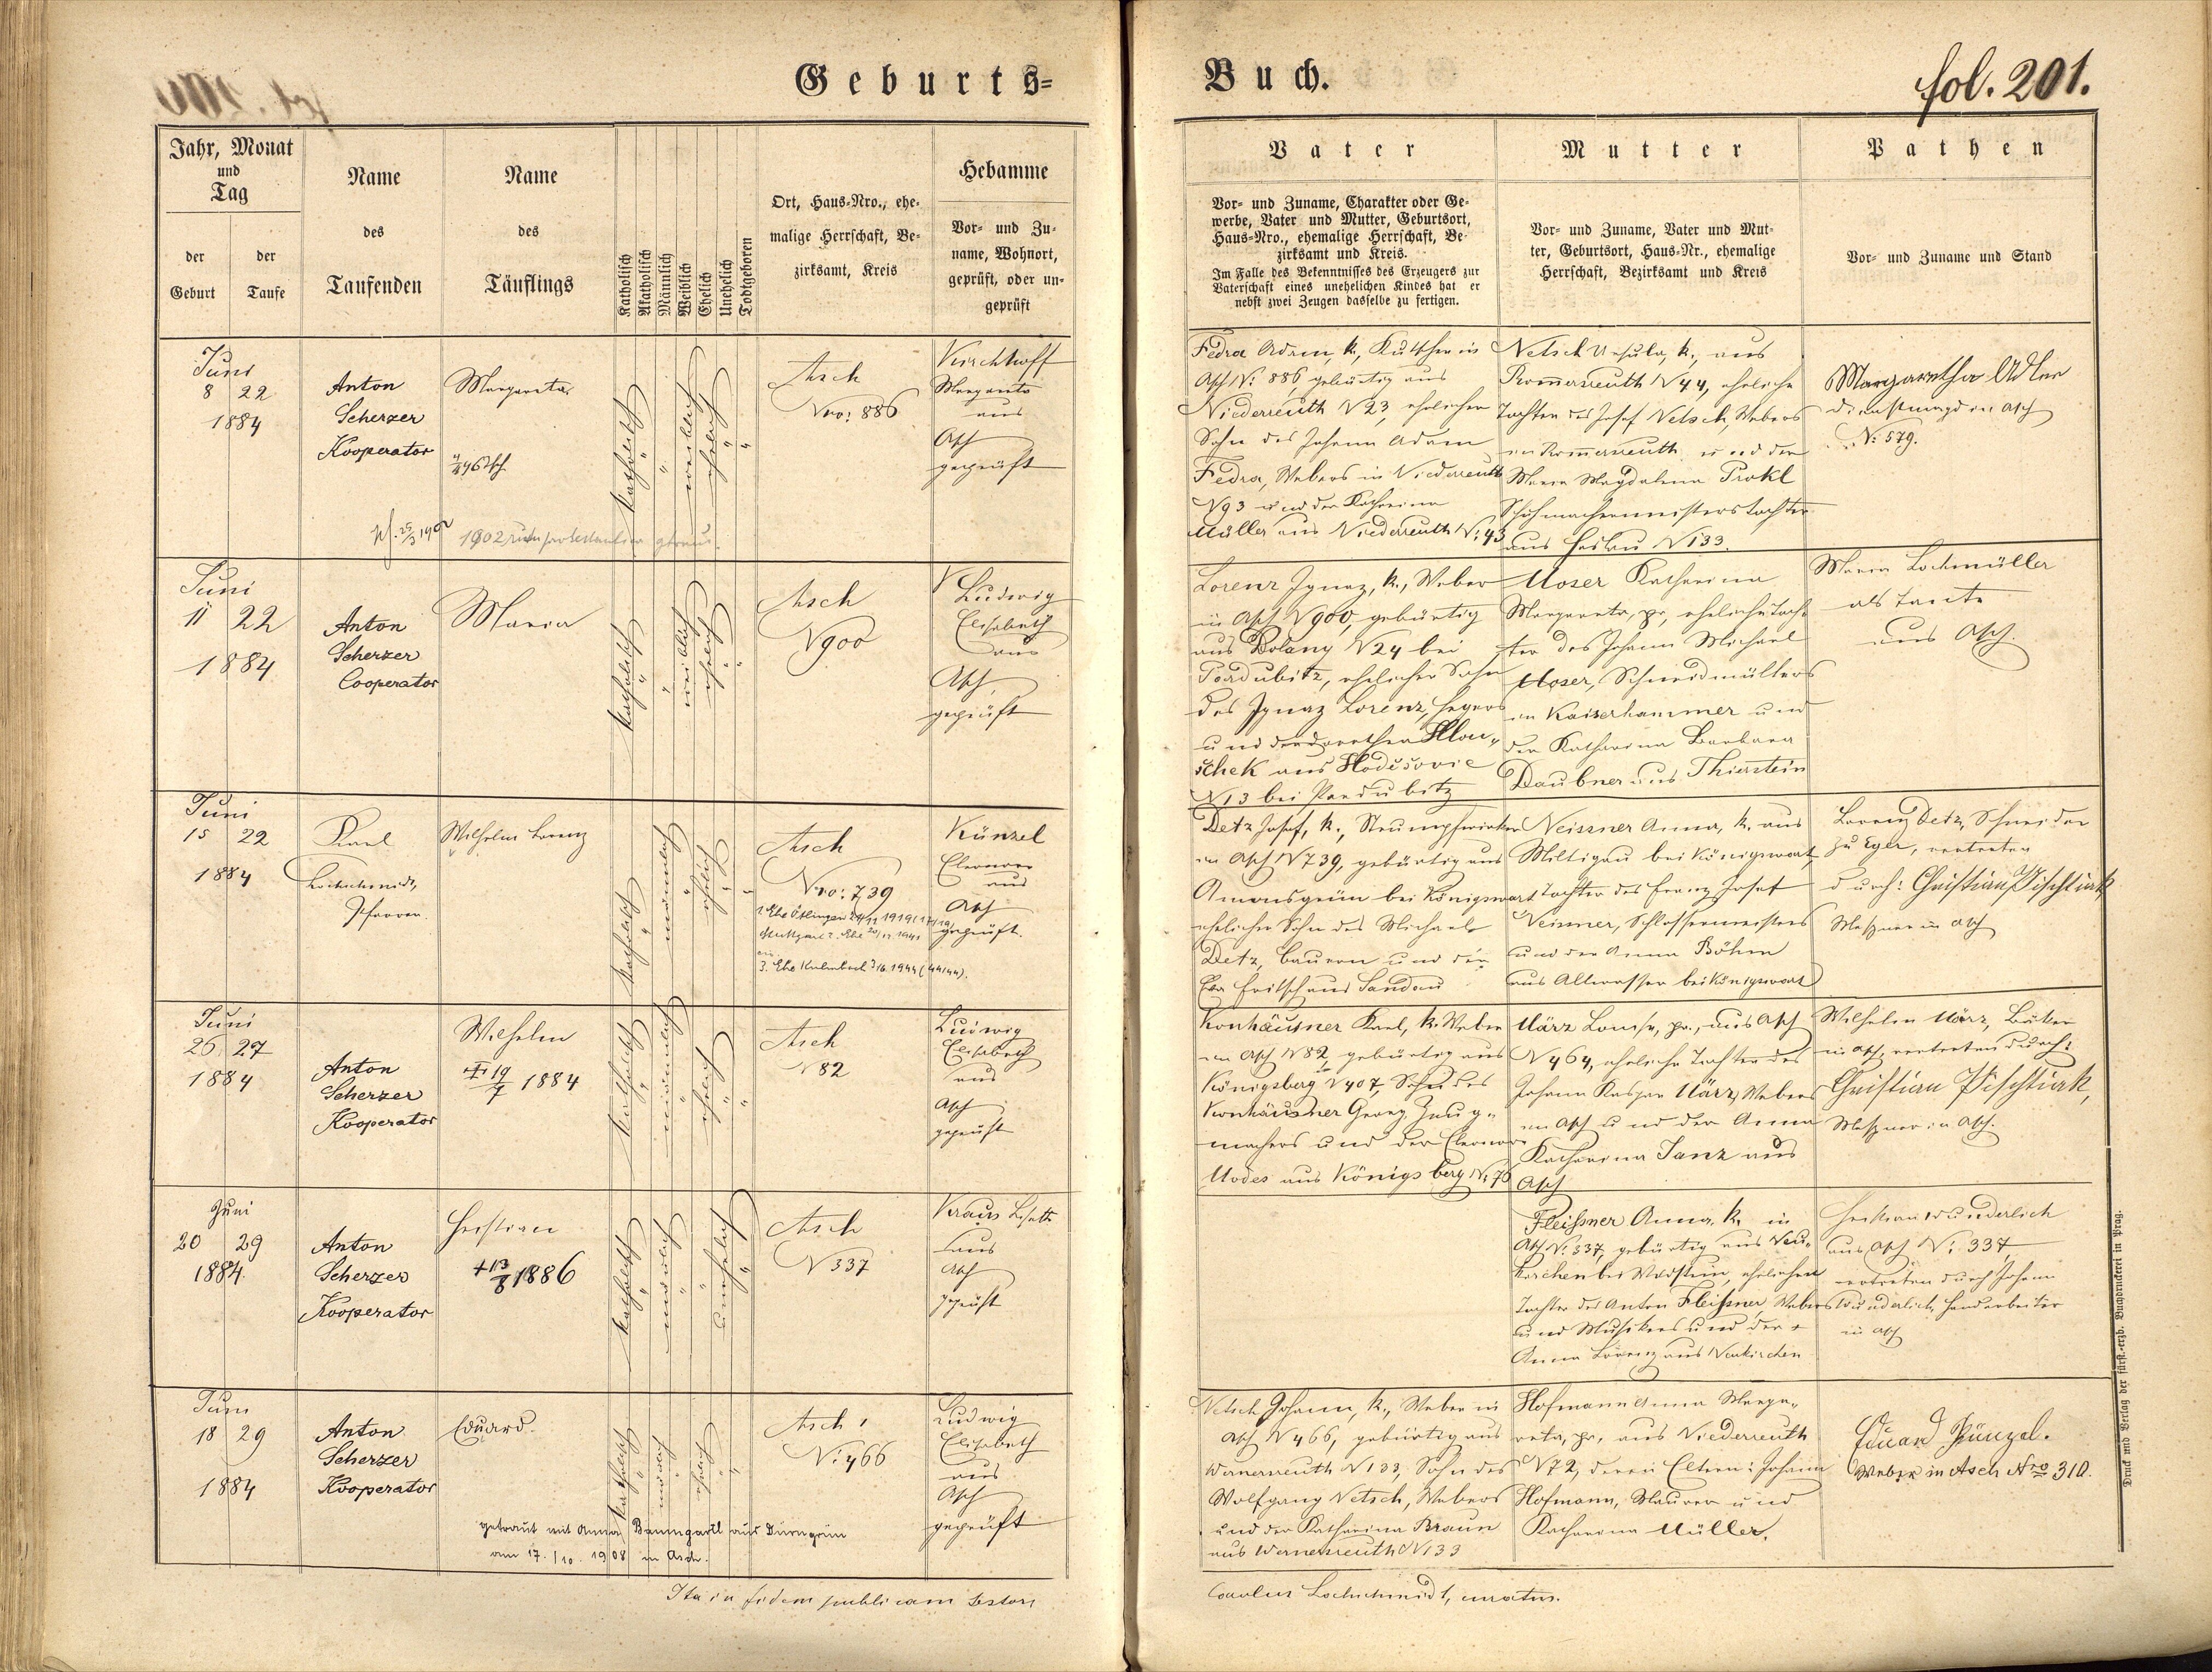 Geburts=
Buch.
fol. 201.
Jahr, Monat
und
Tag
der
Geburt
der
Taufe
Name
des
Taufenden
Name
des
Täuflings
Katholisch
Akatholisch
Männlich
Weiblich
Ehelich
Unehelich
Todtgeboren
Ort, Haus-Nro., ehe-
malige Herrschaft, Be-
zirksamt, Kreis
Hebamme
Vor- und Zu-
name, Wohnort,
geprüft, oder un-
geprüft
Vater
Vor- und Zuname, Charakter oder Ge-
werbe, Vater und Mutter, Geburtsort,
Haus-Nro., ehemalige Herrschaft, Be-
zirksamt und Kreis.
Im Falle des Bekenntnisses des Erzeugers zur
Vaterschaft eines unehelichen Kindes hat er
nebst zwei Zeugen dasselbe zu fertigen.
Mutter
Vor- und Zuname, Vater und Mut-
ter, Geburtsort, Haus-Nr., ehemalige
Herrschaft, Bezirksamt und Kreis
Pathen
Vor- und Zuname und Stand
Juni
8 22
1884
Anton
Scherzer
Kooperator
Margareta
1902
katholisch
weiblich
ehelich
Asch
Nro: 886
Kirchhoff
Margareta
aus
Asch
geprüft
Fedra Adam, k., Kutscher in
Asch N: 886, gebürtig aus
Niederreuth N 23, ehelicher
Sohn des Johann Adam
Fedra, Webers in Niederreuth
N 93 und der Katharina
Müller aus Niederreuth N: 43
Netsch Ursula, k., aus
Rom̅erreuth N 44, eheliche
Tochter des Josef Netsch, Webers
in Rom̅erreuth und der
Maria Magdalena Prokl
Schuhmachermeisterstochter
aus Haslau N 133.
Margaretha Adler
Dienstmagd in Asch
N: 579.
Juni
11 22
1884
Anton
Scherzer
Cooperator
Maria
katholisch
weiblich
ehelich
Asch
N 900
Ludwig
Elisabeth
aus
Asch,
geprüft
Lorenz Ignaz, k., Weber
in Asch N 900, gebürtig
aus Dolany N 24 bei
Pardubitz, ehelicher Sohn
des Ignaz Lorenz, Hegers
und der Dorothea Hlou-
schek aus
N 13 bei Pardubitz
Moser Katharina
Margareta, pr., eheliche Toch-
ter des Johann Michael
Moser, Schneidmüllers
in Kaiserhammer und
der Katharina Barbara
Daubner aus Thierstein
Maria Lochmüller
als Tante
aus Asch.
Juni
15 22
1884
Karl
Lochschmidt,
Pfarrer.
Wilhelm Lorenz
katholisch
männlich
ehelich
Asch
Nro: 739
3. Ehe Kulmbach 3/6.1944 (44/44).
Künzel
Eleonore
aus
Asch
geprüft.
Detz Josef, k., Strumpfwirker
in Asch N 739, gebürtig aus
Amonsgrün bei Königswart
ehelicher Sohn des Michael
Detz, Bauern und der
Eva Fritsch aus Sandau
Neissner Anna, k. aus
Miltigau bei Königswart,
Tochter des Franz Josef
Neissner, Schlossermeisters
und der Anna Böhm
aus Altwasser bei Königswart
Lorenz Detz, Schneider
zu Eger, vertreten
durch: Christian Pischtiak
Meßner in Asch
Juni
26 27
1884
Anton
Scherzer
Kooperator
Wilhelm
19/7 1884
katholisch
männlich
ehelich
Asch
N 82
Ludwig
Elisabeth
aus
Asch
geprüft
Konhäusner Karl, k. Weber
in Asch N 82, gebürtig aus
Königsberg N 407, Sohn des
Konhäusner Georg, Zeug-
machers und der Eleonore
Modes aus Königsberg N: 76
März Louise, pr., aus Asch
N 464, eheliche Tochter des
Johann Kaspar März, Webers
in Asch und der Anna
Katharina Janz aus
Asch
Wilhelm März, Bäcker
in Asch, vertreten durch:
Christian Pischtiak,
Meßner in Asch.
Juni
20 29
1884.
Anton
Scherzer
Kooperator
Christian
+ 13/8 1886
katholisch
männlich
unehelich
Asch
N 337
Kraus Lisette
aus
Asch
geprüft
Fleißner Anna, k. in
Asch N: 337, gebürtig aus Neu-
kirchen bei Wildstein, eheliche
Tochter des Anton Fleißner, Webers
und Musikers und der
Anna Lorenz aus Neukirchen
Christian Wunderlich
aus Asch N: 337,
vertreten durch Johann
Wunderlich, Handarbeiter
in Asch
Juni
18 29
1884
Anton
Scherzer
Kooperator
Eduard.
katholisch
männlich
ehelich
Asch,
N: 466
Ludwig
Elisabeth
aus
Asch
geprüft
getraut mit Anna Baumgartl aus Dürngrün
am 17./10. 1908 in Asch.
Netsch Johann, k., Weber in
Asch N 466, gebürtig aus
Wernersreuth N 133, Sohn des
Wolfgang Netsch, Webers
und der Katharina Braun
aus Wernersreuth N 133
Hofmann Anna Marga-
reta, pr., aus Niederreuth
N 72, deren Eltern: Johann
Hofmann, Maurer und
Katharina Müller.
Eduard Künzel.
Weber in Asch Nro 310.
Ita in fidem publicam testor
Carolus Lochschmidt, curatus.
Druck und Verlag der fürst.-erzb. Buchdruckerei in Prag.